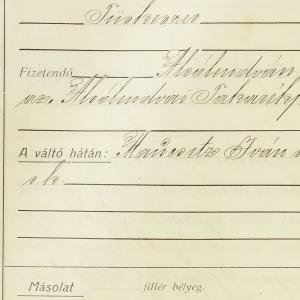 Tüskeszer
Fizetendő Alsólendván
az Alsólendvai Takarékp
A váltó hátán: Maücsetz Iván
s.k.
Másolat fillér bélyeg.